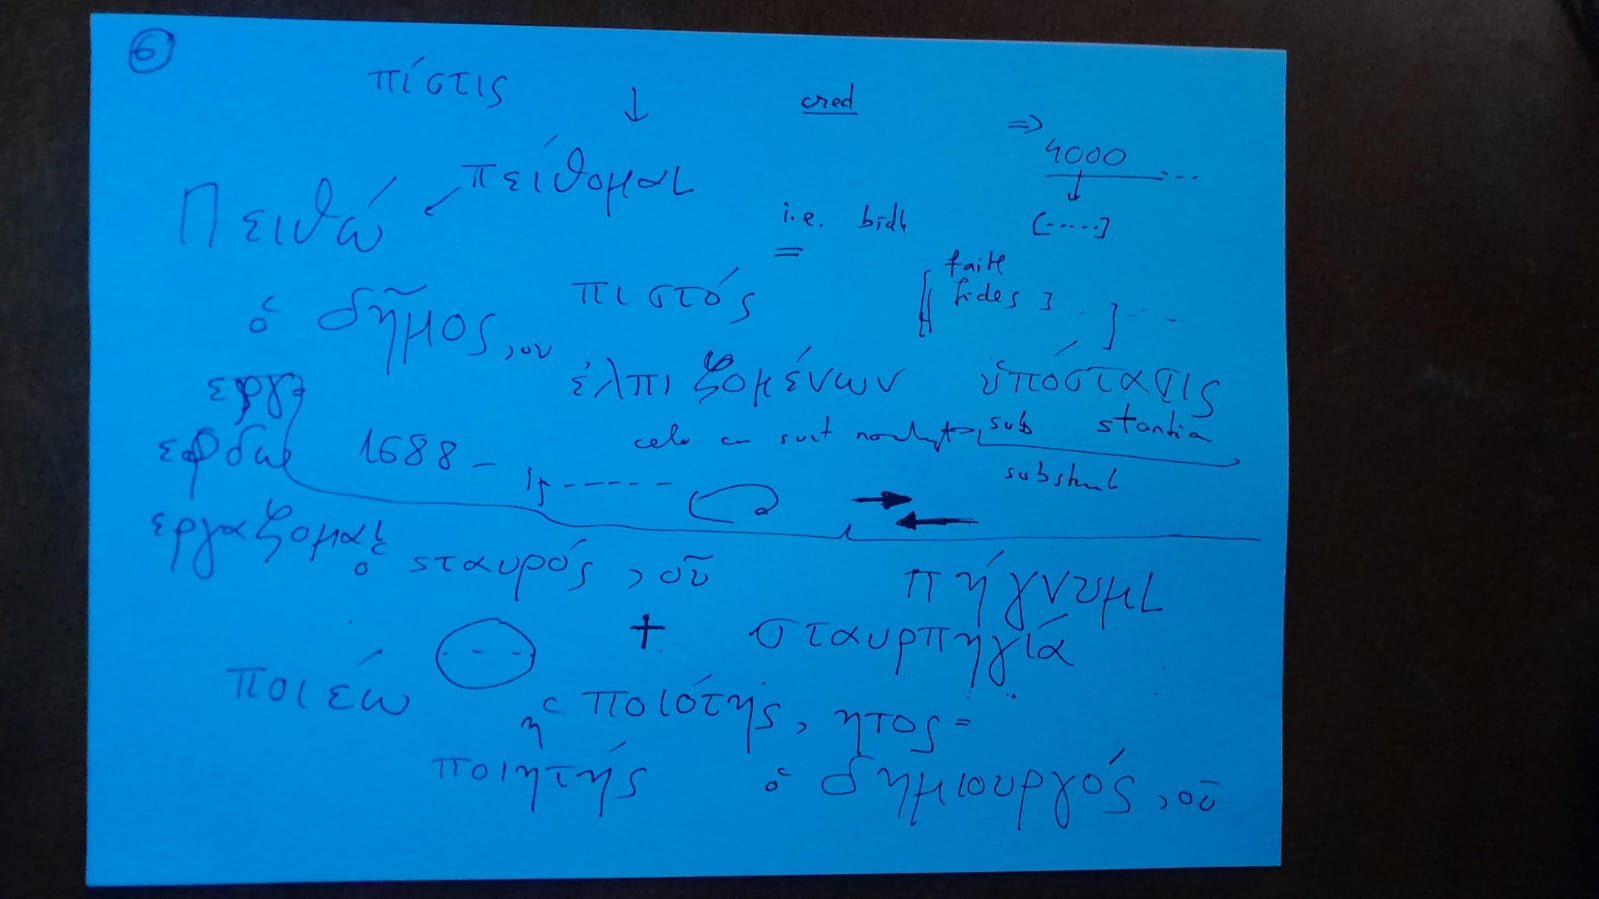 6
πίστις ↓ cred ⇒ 4000
Πειθώ ↙ πείθομαι
i.e. =
(.....]
faith
fides ]
ὁ δῆμος, ου πιστός
ἐλπιζομένων ὑπόστασις
sub stantia
1688 –
εργαζομαι
ὁ σταυρός, οῦ πήγνυμι
+ σταυρπηγία
ποιέω
ἡ ποιότής, ητος =
ποιητής ὁ δημιουργός, οῦ